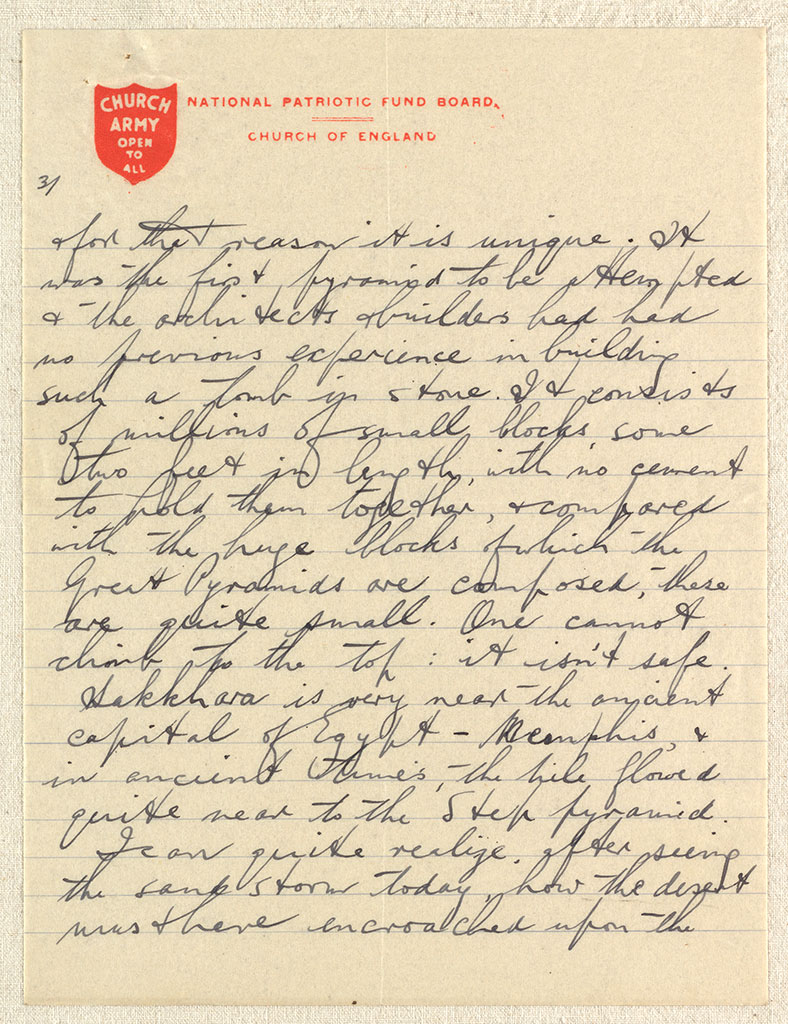 CHURCH
ARMY
OPEN
TO
ALL
NATIONAL PATRIOTIC FUND BOARD.
CHURCH OF ENGLAND
3/
& for that reason it is unique. It
was the first pyramid to be attempted
& the architects & builders had had
no previous experience in building
such a tomb in stone. It consists
of millions of small blocks some
two feet in length, with no cement
to hold them together, & compared
with the huge blocks of which the
Great Pyramids are composed, these
are quite small. One cannot
climb to the top: it isn't safe.
Sakkhara is very near the ancient
capital of Egypt - Memphis, &
in ancient times, the Nile flowed
quite near to the Step pyramid.
I can quite realize, after seeing
the sand storm today, how the desert
must have encroached upon the